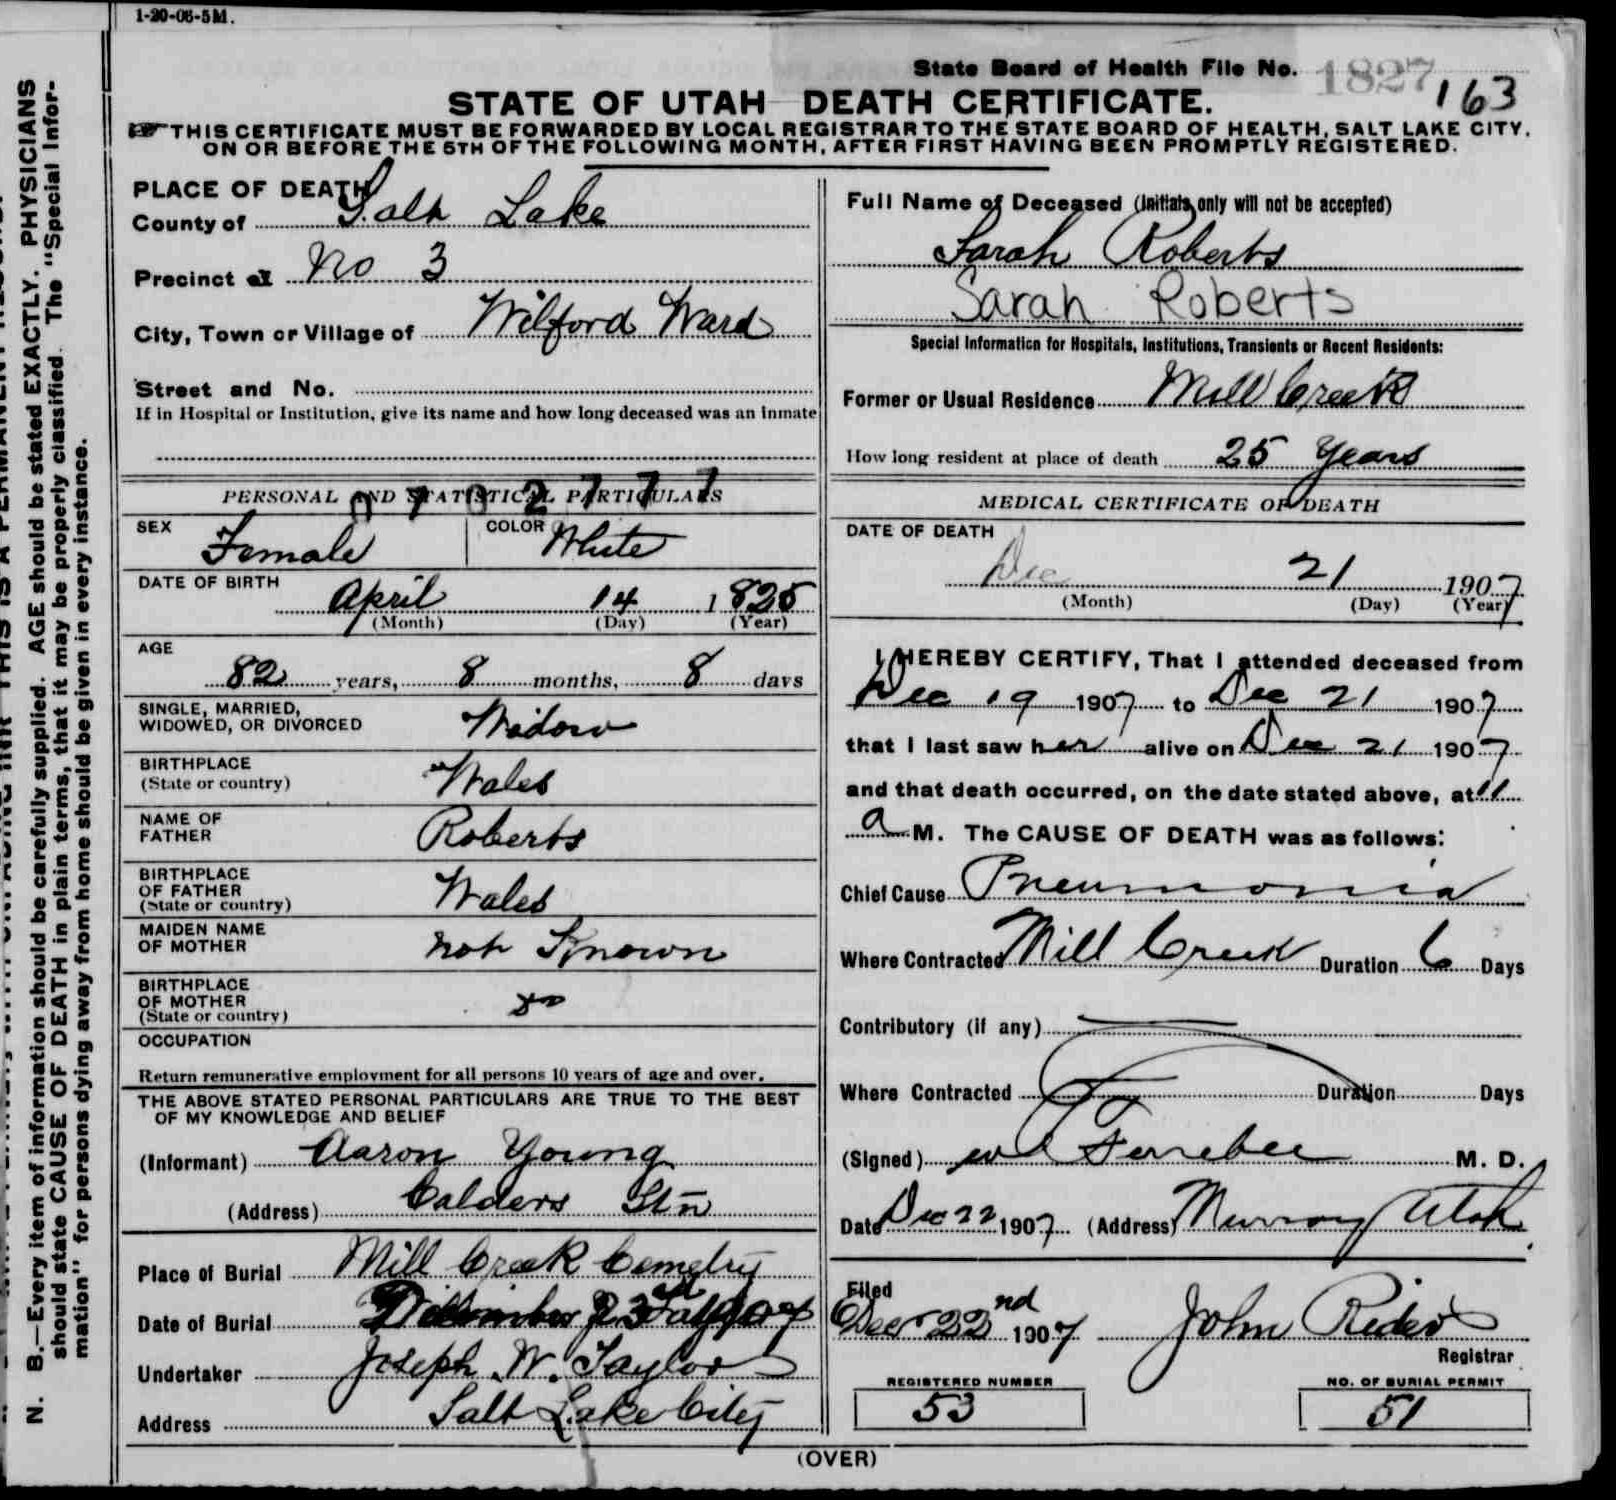 1-20-06-5M.
State Board of Health File No. 1827 163
STATE OF UTAH DEATH CERTIFICATE.
THIS CERTIFICATE MUST BE FORWARDED BY LOCAL REGISTRAR TO THE STATE BOARD OF HEALTH, SALT LAKE CITY,
ON OR BEFORE THE 5TH OF THE FOLLOWING MONTH, AFTER FIRST HAVING BEEN PROMPTLY REGISTERED.
PLACE OF DEATH
County of Salt Lake
Precinct of No 3
City, Town or Village of Wilford Ward
Street and No.
If in Hospital or Institution, give its name and how long deceased was an inmate
PERSONAL AND STATISTICAL PARTICULARS
0702777
SEX Female COLOR White
DATE OF BIRTH
April 14 1825
(Month) (Day) (Year)
AGE
82 years, 8 months, 8 days
SINGLE, MARRIED,
WIDOWED, OR DIVORCED Widow
BIRTHPLACE
(State or country) Wales
NAME OF
FATHER Roberts
BIRTHPLACE
OF FATHER
(State or country) Wales
MAIDEN NAME
OF MOTHER not Known
BIRTHPLACE
OF MOTHER
(State or country) do
OCCUPATION
Return remunerative employment for all persons 10 years of age and over.
THE ABOVE STATED PERSONAL PARTICULARS ARE TRUE TO THE BEST
OF MY KNOWLEDGE AND BELIEF
(Informant) Aaron Young
(Address) Calders Stn
Place of Burial Mill Creek Cemetry
Date of Burial December 23rd 1907
Undertaker Joseph W. Taylor
Address Salt Lake City
Full Name of Deceased (Initials only will not be accepted)
Sarah Roberts
Sarah Roberts
Special Information for Hospitals, Institutions, Transients or Recent Residents:
Former or Usual Residence Mill Creek
How long resident at place of death 25 Years
MEDICAL CERTIFICATE OF DEATH
DATE OF DEATH
Dec 21 1907
(Month) (Day) (Year)
I HEREBY CERTIFY, That I attended deceased from
Dec 19 1907 to Dec 21 1907
that I last saw her alive on Dec 21 1907
and that death occurred, on the date stated above, at 11
a M. The CAUSE OF DEATH was as follows:
Chief Cause Pneumonia
Where Contracted Mill Creek Duration 6 Days
Contributory (if any)
Where Contracted Duration Days
(Signed) Ferrebee M. D.
Date Dec 22 1907 (Address) Murray Utah
Filed
Dec 22nd 1907 John Rider
Registrar
REGISTERED NUMBER NO. OF BURIAL PERMIT
53 51
(OVER)
N. B.—Every item of information should be carefully supplied. AGE should be stated EXACTLY. PHYSICIANS
should state CAUSE OF DEATH in plain terms, that it may be properly classified. The "Special Infor-
mation" for persons dying away from home should be given in every instance.